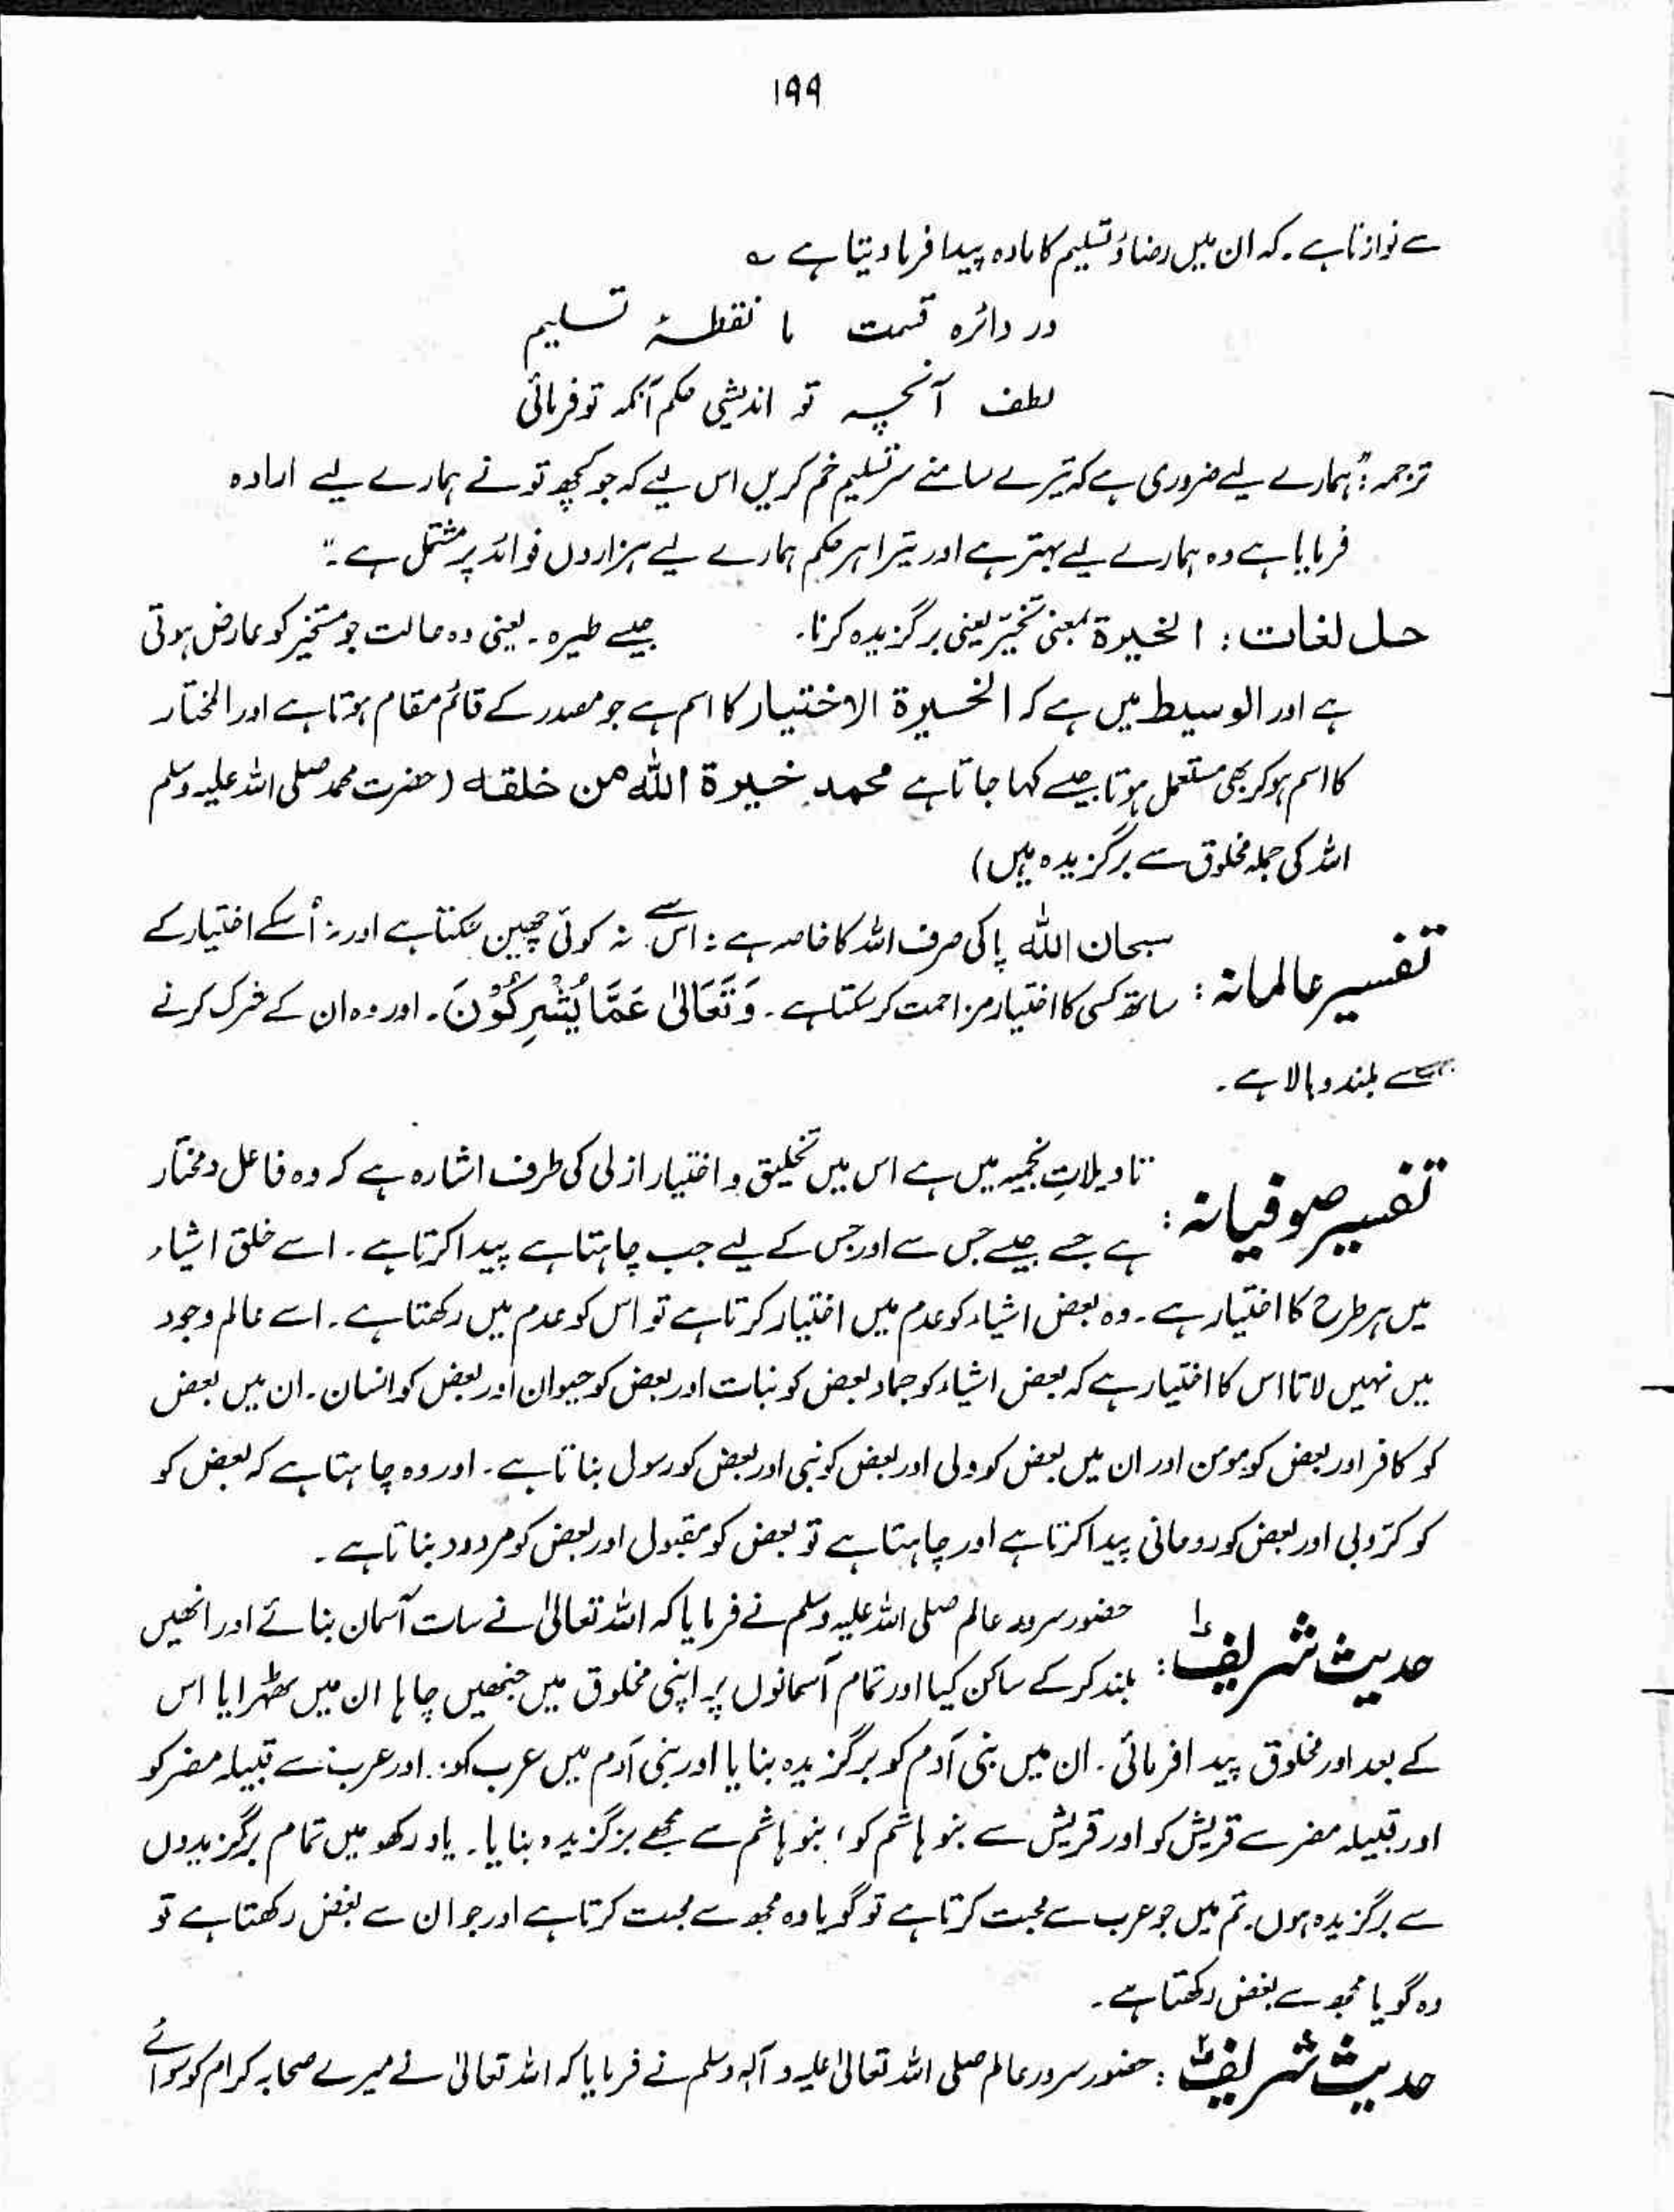 ۱۹۹
سے نوازتا ہے ۔ کہ ان میں رضاؤ تسلیم کا مادہ پیدا فرما دیتا ہے ؎
در دائرہ قسمت ما نقطۂ تسلیم
لطف آنچہ تو اندیشی حکم آنکہ تو فرمائی
ترجمہ : "ہمارے لیے ضروری ہے کہ تیرے سامنے سر تسلیم خم کریں اس لیے کہ جو کچھ تو نے ہمارے لیے ارادہ
فرمایا ہے وہ ہمارے لیے بہتر ہے اور تیرا ہر حکم ہمارے لیے ہزاروں فوائد پر مشتمل ہے ۔"
حل لغات : الخیرۃ بمعنی تخیّر یعنی برگزیدہ کرنا ۔ جیسے طیرہ ۔ یعنی وہ حالت جو متخیر کو عارض ہوتی
ہے اور الوسیط میں ہے کہ الخیرۃ الاختیار کا اسم ہے جو مصدر کے قائم مقام ہوتا ہے اور المختار
کا اسم ہو کر بھی مستعمل ہوتا جیسے کہا جاتا ہے محمد خیرۃ اللہ من خلقہ (حضرت محمد صلی اللہ علیہ وسلم
اللہ کی جملہ مخلوق سے برگزیدہ ہیں)
تفسیر عالمانہ : سبحان اللہ پاکی صرف اللہ کا خاصہ ہے : اس سے نہ کوئی چھین سکتا ہے اور نہ اُسکے اختیار کے
ساتھ کسی کا اختیار مزاحمت کر سکتا ہے ۔ وَتَعَالٰی عَمَّا یُشْرِکُوْنَ ۔ اور وہ ان کے شرک کرنے
سے بلند و بالا ہے ۔
تفسیر صوفیانہ : تاویلاتِ نجمیہ میں ہے اس میں تخلیق و اختیار ازلی کی طرف اشارہ ہے کہ وہ فاعل و مختار
ہے جسے جیسے جس سے اور جس کے لیے جب چاہتا ہے پیدا کرتا ہے ۔ اسے خلق اشیاء
میں ہر طرح کا اختیار ہے ۔ وہ بعض اشیاء کو عدم میں اختیار کرتا ہے تو اس کو عدم میں رکھتا ہے ۔ اسے عالم وجود
میں نہیں لاتا اس کا اختیار ہے کہ بعض اشیاء کو جماد بعض کو نبات اور بعض کو حیوان اور بعض کو انسان ۔ ان میں بعض
کو کافر اور بعض کو مومن اور ان میں بعض کو ولی اور بعض کو نبی اور بعض کو رسول بناتا ہے ۔ اور وہ چاہتا ہے کہ بعض کو
کو کرّوبی اور بعض کو روحانی پیدا کرتا ہے اور چاہتا ہے تو بعض کو مقبول اور بعض کو مردود بناتا ہے ۔
حدیث شریف ۱ : حضور سرور عالم صلی اللہ علیہ وسلم نے فرمایا کہ اللہ تعالیٰ نے سات آسمان بنائے اور انھیں
بلند کر کے ساکن کیا اور تمام آسمانوں پر اپنی مخلوق میں جنھیں چاہا ان میں ٹھہرایا اس
کے بعد اور مخلوق پیدا فرمائی ۔ ان میں بنی آدم کو برگزیدہ بنایا اور بنی آدم میں عرب کو ۔ اور عرب سے قبیلہ مضر کو
اور قبیلہ مضر سے قریش کو اور قریش سے بنو ہاشم کو ، بنو ہاشم سے مجھے برگزیدہ بنایا ۔ یاد رکھو میں تمام برگزیدوں
سے برگزیدہ ہوں ۔ تم میں جو عرب سے محبت کرتا ہے تو گویا وہ مجھ سے محبت کرتا ہے اور جو ان سے بغض رکھتا ہے تو
وہ گویا مجھ سے بغض رکھتا ہے ۔
حدیث شریف ۲ : حضور سرور عالم صلی اللہ تعالیٰ علیہ و آلہ وسلم نے فرمایا کہ اللہ تعالیٰ نے میرے صحابہ کرام کو سوائے